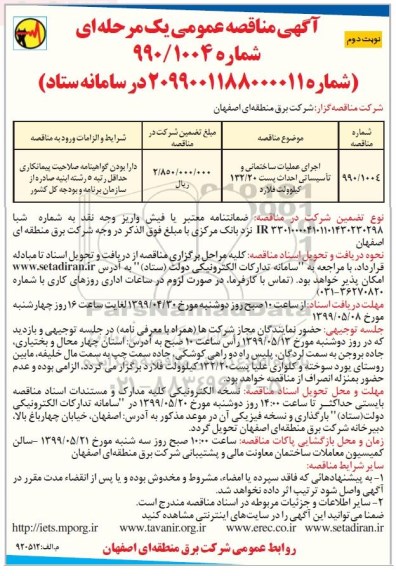 آگهی مناقصه عمومی یک مرحله ای
نوبت دوم
شماره ۹۹۰/۱۰۰۴
(شماره ۲۰۹۹۰۰۱۱۸۸۰۰۰۰۱۱ در سامانه ستاد)
شرکت مناقصه گزار: شرکت برق منطقه‌ای اصفهان
شماره مناقصه
موضوع مناقصه
مبلغ تضمین شرکت در مناقصه
شرایط و الزامات ورود به مناقصه
۹۹۰/۱۰۰۴
اجرای عملیات ساختمانی و تأسیساتی احداث پست ۱۳۲/۲۰ کیلوولت فلارد
۲/۸۵۰/۰۰۰/۰۰۰ ریال
دارا بودن گواهینامه صلاحیت پیمانکاری حداقل رتبه ۵ رشته ابنیه صادره از سازمان برنامه و بودجه کل کشور
نوع تضمین شرکت در مناقصه: ضمانتنامه معتبر یا فیش واریز وجه نقد به شماره شبا
IR ۳۳۰۱۰۰۰۰۴۰۱۰۱۱۰۱۴۳۰۲۳۰۲۹۸ نزد بانک مرکزی با مبلغ فوق الذکر در وجه شرکت برق منطقه ای
اصفهان
نحوه دریافت و تحویل اسناد مناقصه: کلیه مراحل برگزاری مناقصه از دریافت و تحویل اسناد تا مبادله
قرارداد، با مراجعه به "سامانه تدارکات الکترونیکی دولت (ستاد)" به آدرس www.setadiran.ir
امکان پذیر خواهد بود. (تماس با کارفرما، در صورت لزوم در ساعات اداری روزهای کاری با شماره
۳۶۲۷۰۸۲۰-۰۳۱)
مهلت دریافت اسناد: از ساعت ۱۰ صبح روز دوشنبه مورخ ۱۳۹۹/۰۴/۳۰ لغایت ساعت ۱۶ روز چهارشنبه
مورخ ۱۳۹۹/۰۵/۰۸
جلسه توجیهی: حضور نمایندگان مجاز شرکت ها (همراه با معرفی نامه) در جلسه توجیهی و بازدید
که در روز دوشنبه مورخ ۱۳۹۹/۰۵/۱۳ رأس ساعت ۱۰ صبح به آدرس: استان چهار محال و بختیاری،
جاده بروجن به سمت لردگان، پلیس راه دو راهی کوشکی، جاده سمت چپ به سمت مال خلیفه، مابین
روستای یورد سوخته و کلواری علیا پست ۱۳۲/۲۰ کیلوولت فلارد برگزار می گردد، الزامی بوده و عدم
حضور بمنزله انصراف از مناقصه خواهد بود.
مهلت و محل تحویل اسناد مناقصه: نسخه الکترونیکی کلیه مدارک و مستندات اسناد مناقصه
بایستی حداکثر تا ساعت ۱۴:۰۰ روز دوشنبه مورخ ۱۳۹۹/۰۵/۲۰ در "سامانه تدارکات الکترونیکی
دولت (ستاد)" بارگذاری و نسخه فیزیکی آن در موعد مذکور به آدرس: اصفهان، خیابان چهارباغ بالا،
دبیرخانه شرکت برق منطقه‌ای اصفهان تحویل گردد.
زمان و محل بازگشایی پاکات مناقصه: ساعت ۱۰:۰۰ صبح روز سه شنبه مورخ ۱۳۹۹/۰۵/۲۱ -سالن
کمیسیون معاملات ساختمان معاونت مالی و پشتیبانی شرکت برق منطقه‌ای اصفهان
سایر شرایط مناقصه:
۱- به پیشنهادهائی که فاقد سپرده یا امضاء، مشروط و مخدوش بوده و یا پس از انقضاء مدت مقرر در
آگهی واصل شود ترتیب اثر داده نخواهد شد.
۲- سایر اطلاعات و جزئیات مربوطه در اسناد مناقصه مندرج است.
ضمناً می‌توانید این آگهی را در سایت‌های اینترنتی مشاهده کنید
http://iets.mporg.ir www.tavanir.org.ir www.erec.co.ir www.setadiran.ir
روابط عمومی شرکت برق منطقه‌ای اصفهان
م.الف: ۹۲۰۵۱۲